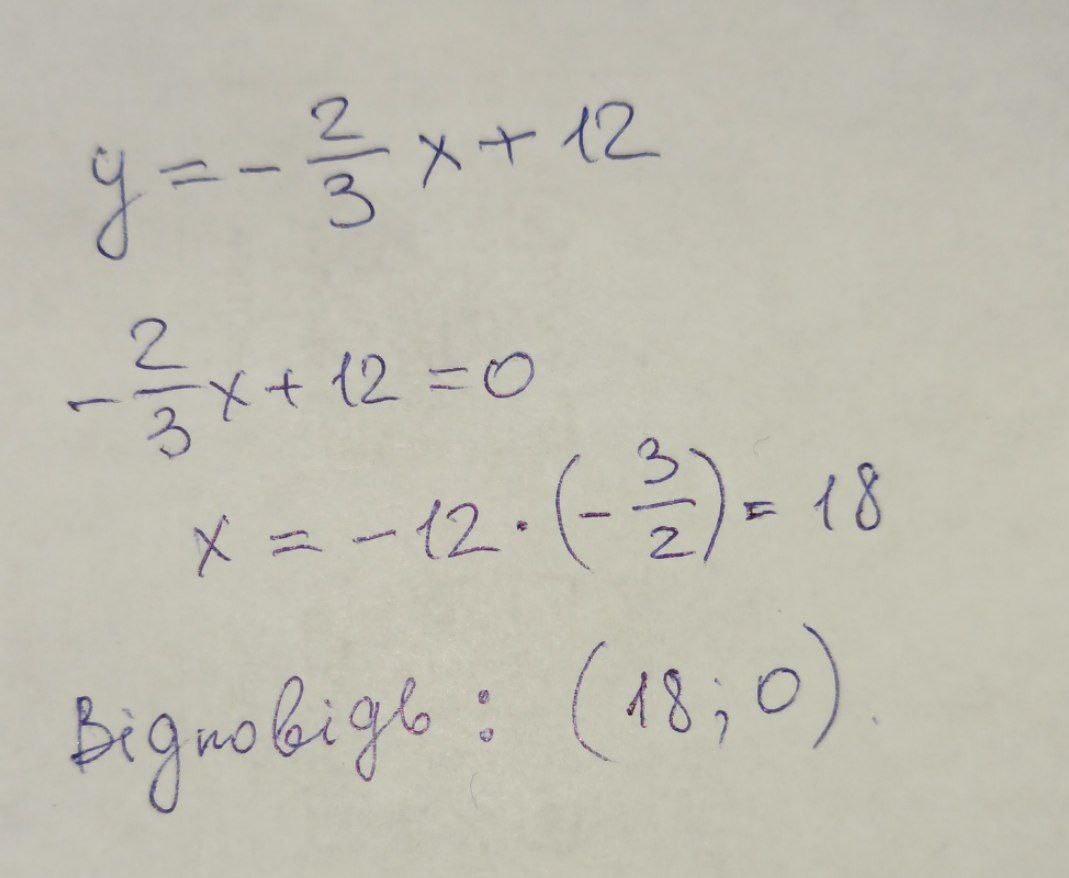 y = - 2/3 x + 12
- 2/3 x + 12 = 0
x = - 12 · (- 3/2) = 18
Відповідь : (18; 0).